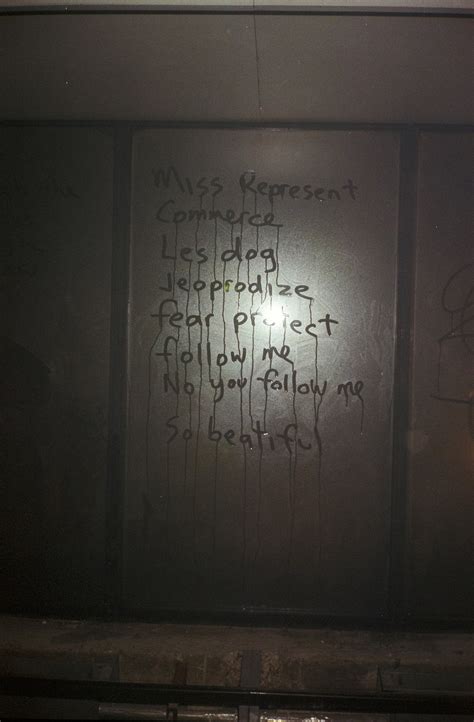 Miss Represent
Commerce
Les dog
Jeoprodize
fear protect
follow me
No you follow me
So beatiful